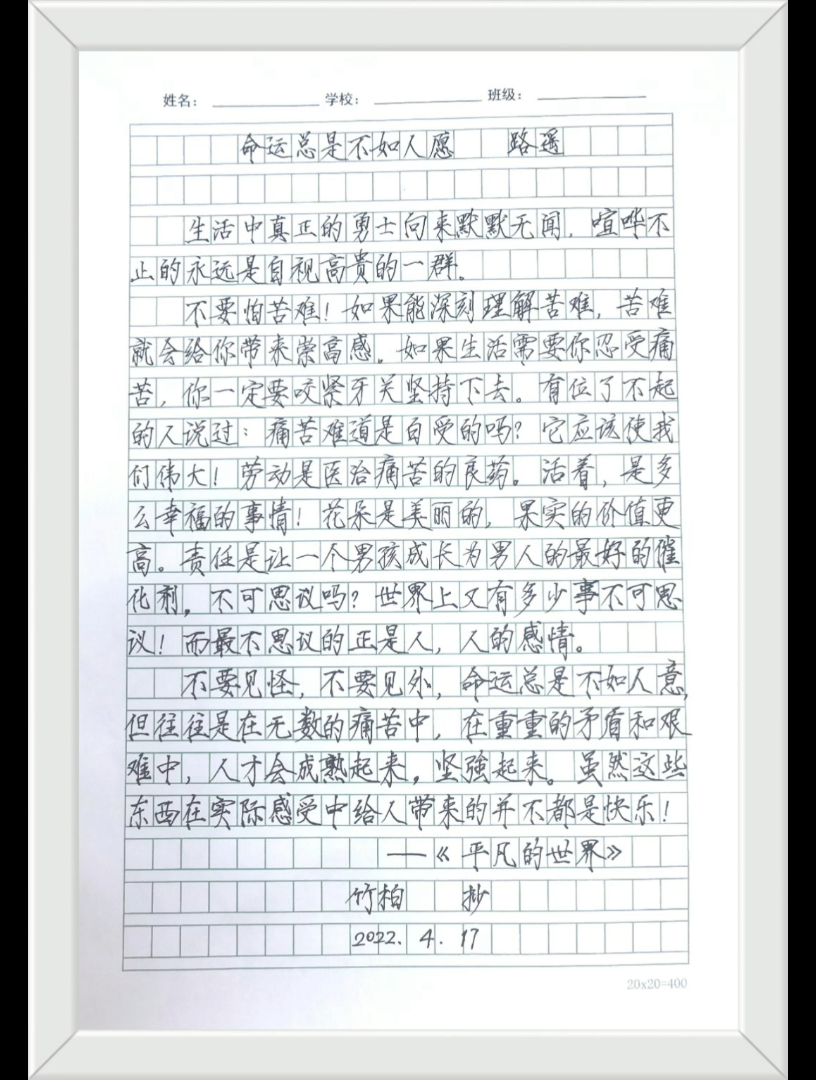 姓名： 学校： 班级：
命运总是不如人愿 路遥
生活中真正的勇士向来默默无闻，喧哗不
止的永远是自视高贵的一群。
不要怕苦难！如果能深刻理解苦难，苦难
就会给你带来崇高感。如果生活需要你忍受痛
苦，你一定要咬紧牙关坚持下去。有位了不起
的人说过：痛苦难道是白受的吗？它应该使我
们伟大！劳动是医治痛苦的良药。活着，是多
么幸福的事情！花朵是美丽的，果实的价值更
高。责任是让一个男孩成长为男人的最好的催
化剂。不可思议吗？世界上又有多少事不可思
议！而最不思议的正是人，人的感情。
不要见怪，不要见外，命运总是不如人意，
但往往是在无数的痛苦中，在重重的矛盾和艰
难中，人才会成熟起来，坚强起来。虽然这些
东西在实际感受中给人带来的并不都是快乐！
——《平凡的世界》
竹柏 抄
2022.4.17
20x20=400